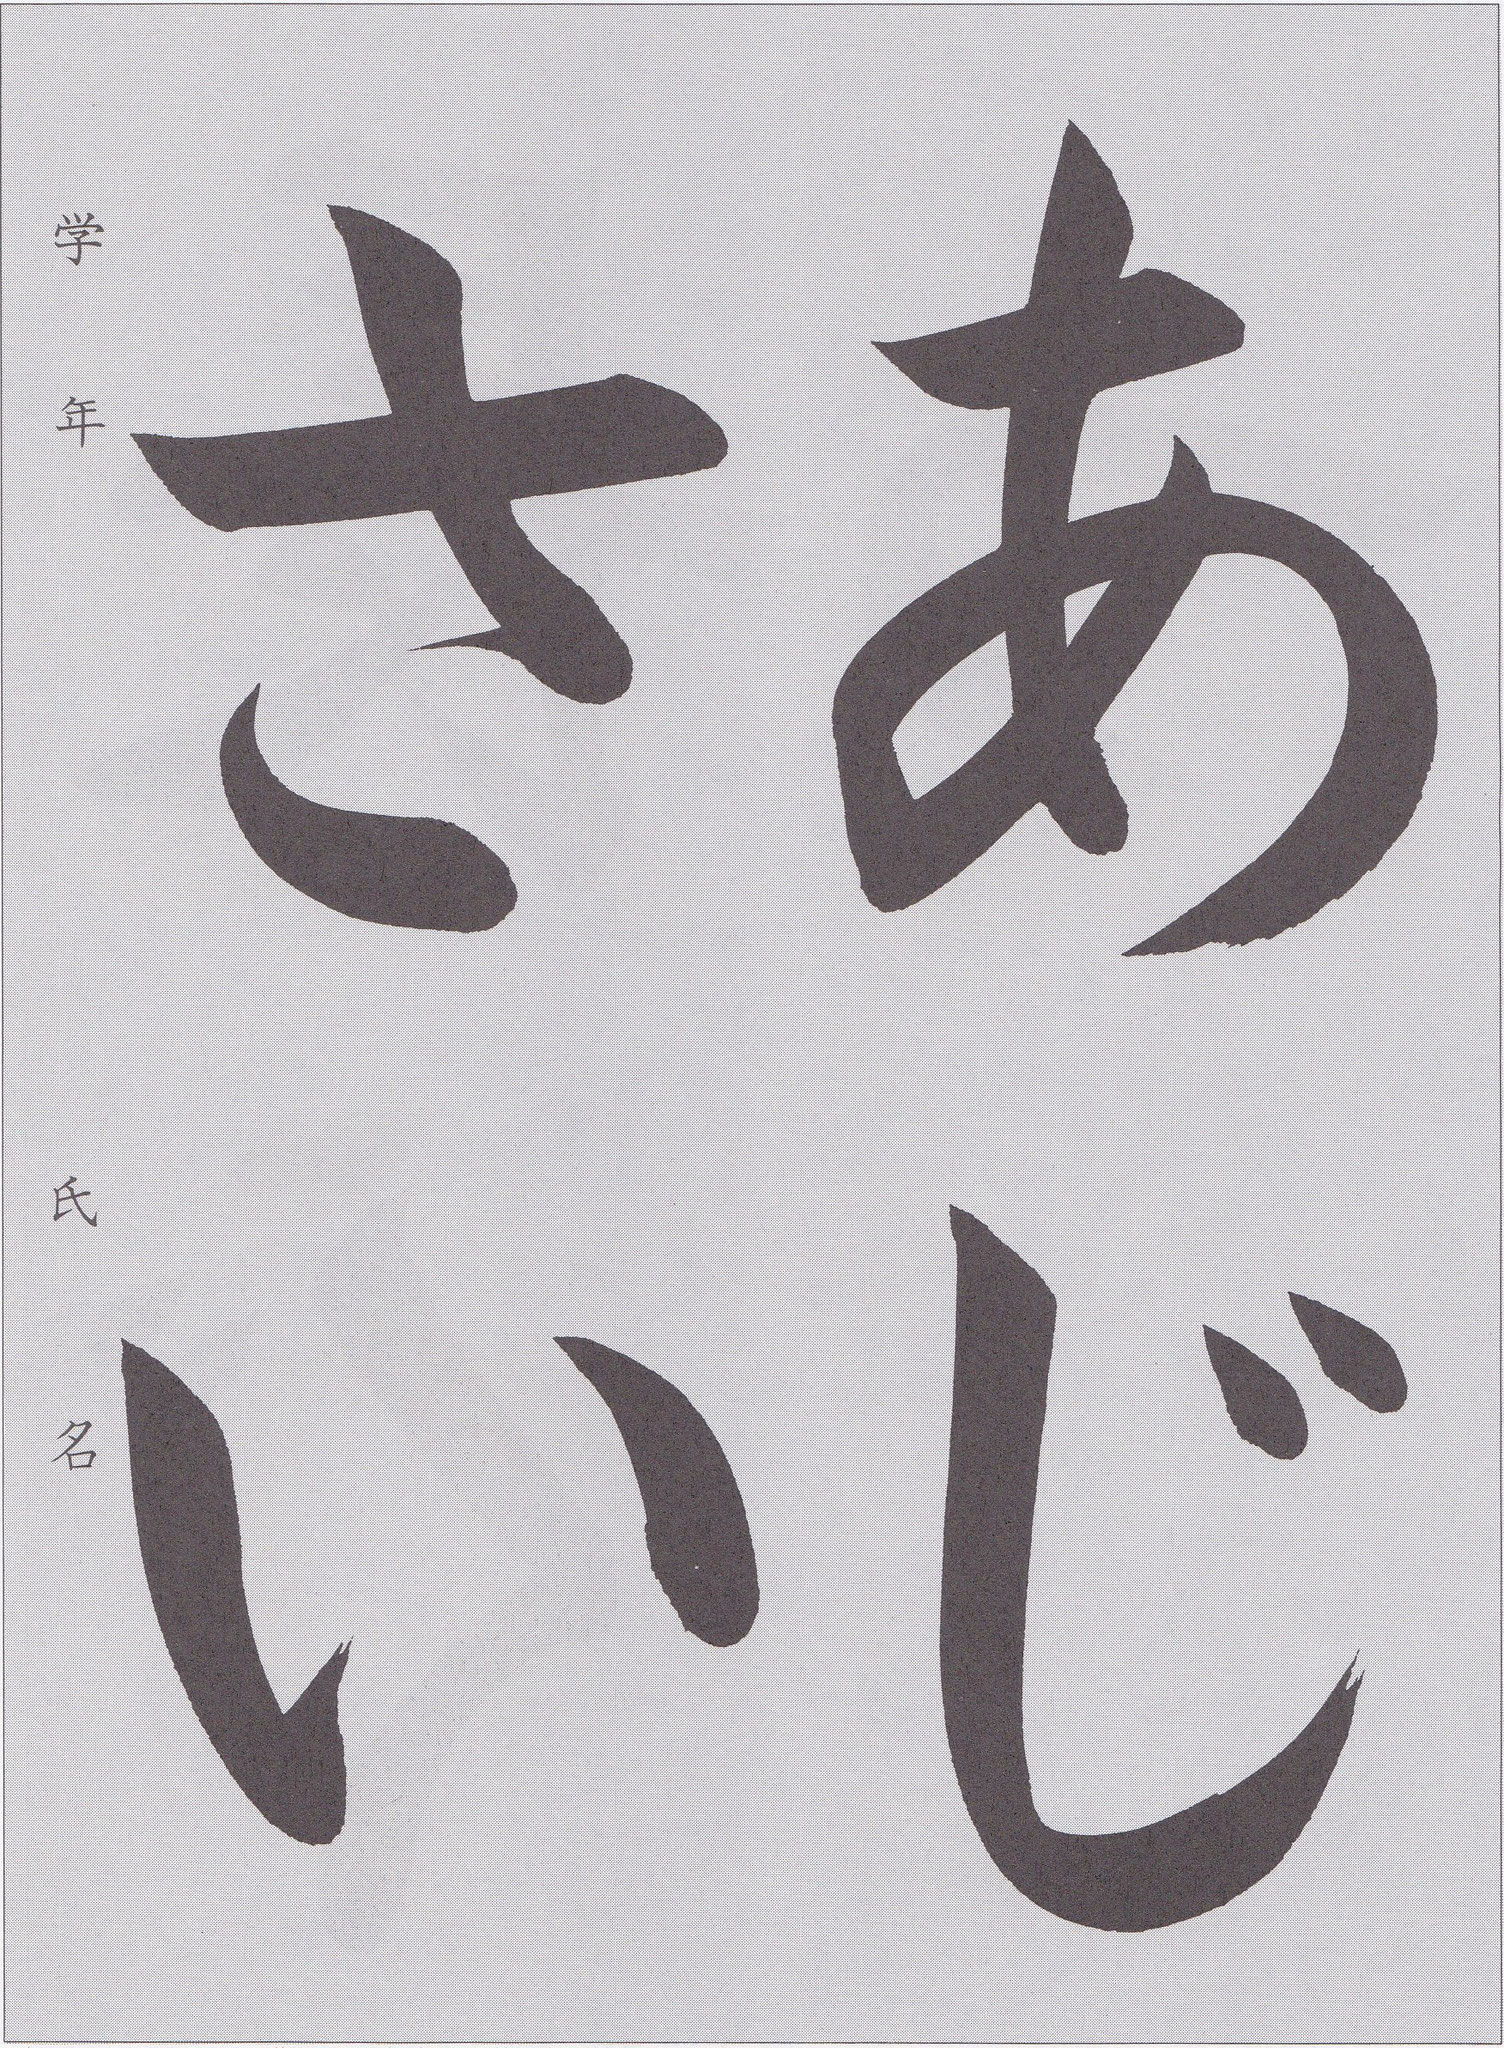 あじ
さい
学年 氏名